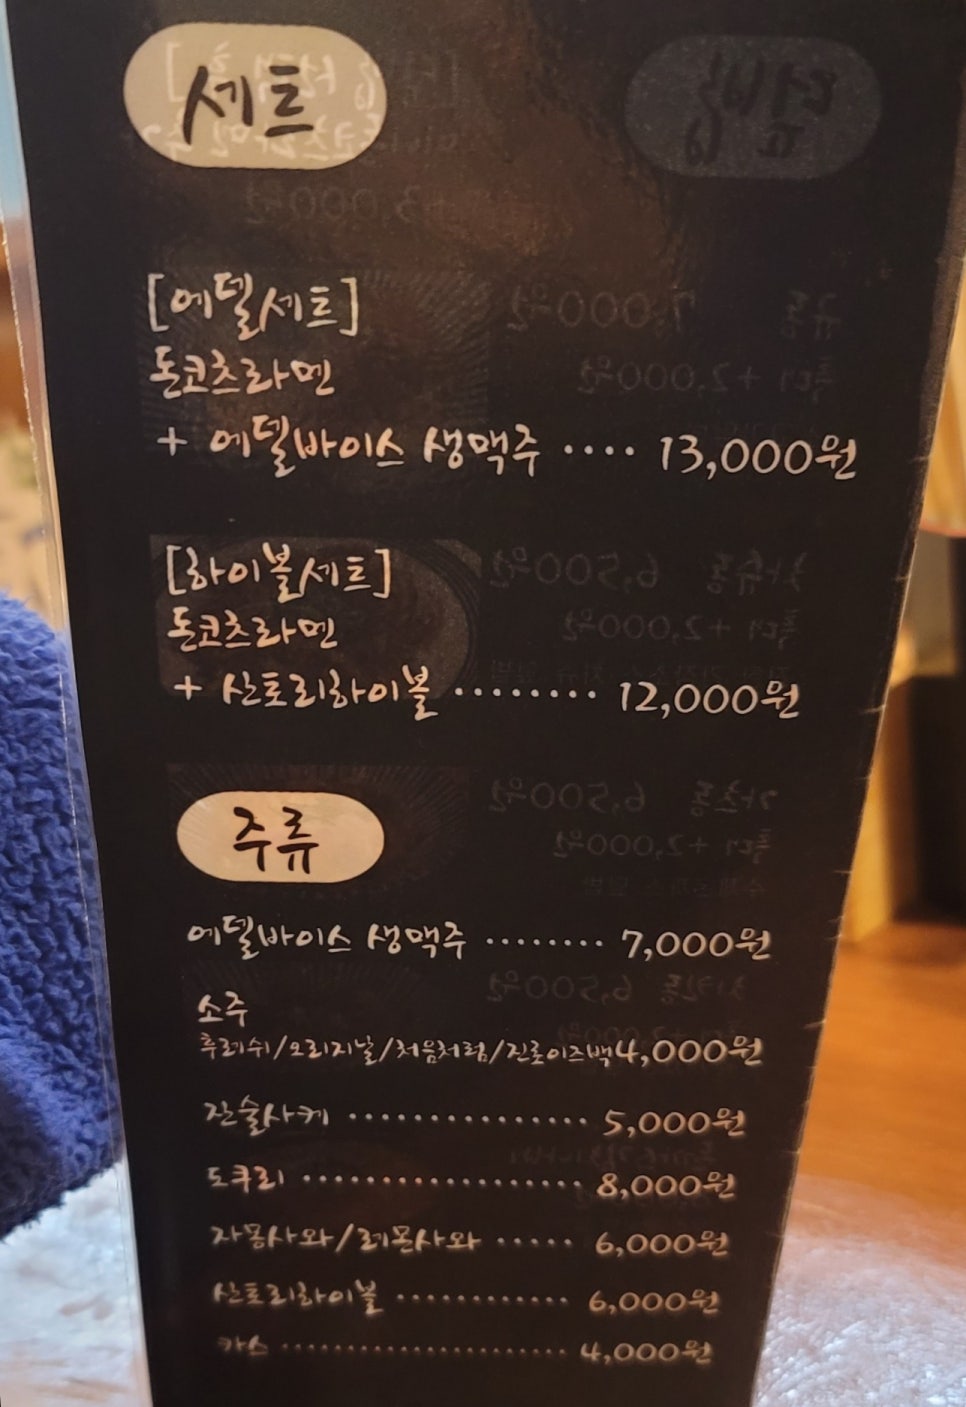 세트
[에델세트]
돈코츠라멘
+ 에델바이스 생맥주 ···· 13,000원
[하이볼세트]
돈코츠라멘
+ 산토리하이볼 ········ 12,000원
주류
에델바이스 생맥주 ········ 7,000원
소주
후레쉬/오리지날/처음처럼/진로이즈백4,000원
잔술사케 ··············· 5,000원
도쿠리 ·················· 8,000원
자몽사와/레몬사와 ····· 6,000원
산토리하이볼 ············ 6,000원
카스 ······················ 4,000원